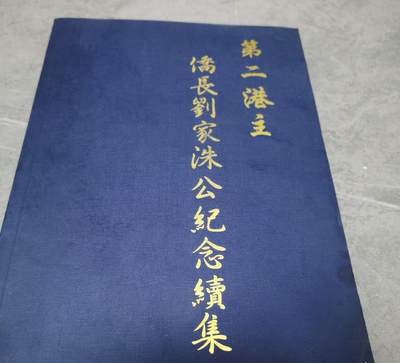 第二港主
僑長劉家洙公紀念續集